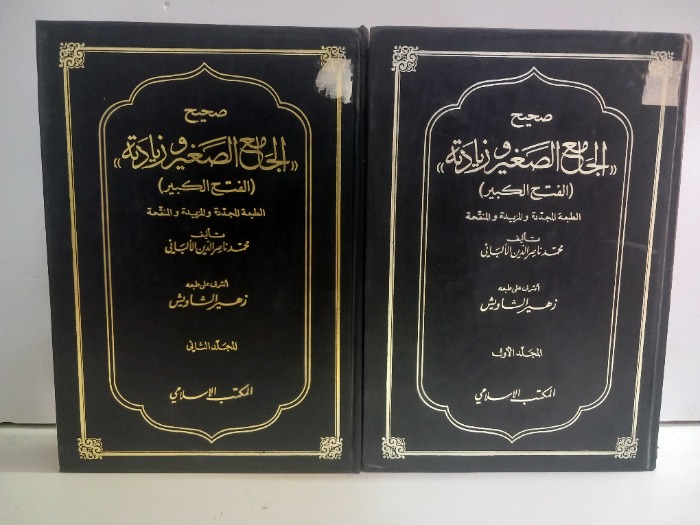 صحيح
«الجامع الصغير وزيادته»
(الفتح الكبير)
الطبعة المجددة والمزيدة والمنقحة
تأليف
محمد ناصر الدين الألباني
أشرف على طبعه
زهير الشاويش
المجلد الأول
المكتب الإسلامي
صحيح
«الجامع الصغير وزيادته»
(الفتح الكبير)
الطبعة المجددة والمزيدة والمنقحة
تأليف
محمد ناصر الدين الألباني
أشرف على طبعه
زهير الشاويش
المجلد الثاني
المكتب الإسلامي